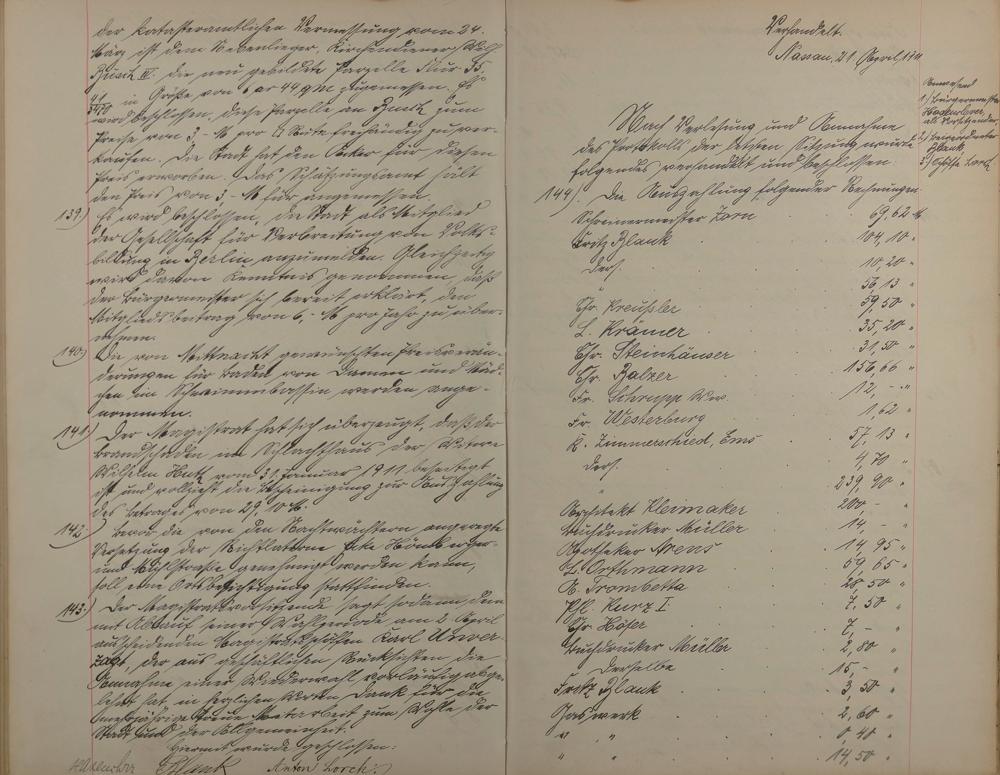 der katasteramtlichen Vermessung vom 24.
März ist dem Nebenlieger, Kirchendiener Wilh.
Busch IV. die neu gebildete Parzelle Flur 55
in Größe von 6 ar 44 qm zugemessen. Es
wird beschlossen, diese Parzelle an Busch zum
Preise von 3,- M pro Rute freihändig zu ver-
kaufen. Die Stadt hat den Acker für diesen
Preis erworben. Das Schätzungsamt hält
den Preis von 3,- M für angemessen.
139) Es wird beschlossen, die Stadt als Mitglied
der Gesellschaft für Verbreitung von Volks-
bildung in Berlin anzumelden. Gleichzeitig
wird davon Kenntnis genommen, daß
der Bürgermeister sich bereit erklärt, den
Mitgliedsbeitrag von 6,- M pro Jahr zu über-
nehmen.
140) Die von Mittnacht gewünschten Preisverän-
derungen für Baden von Damen und Mäd-
chen im Schwimmbassin werden ange-
nommen.
141) Der Magistrat hat sich überzeugt, daß der
Brandschaden im Schlachthaus der Witwe
Wilhelm vom 31. Januar 1911 beseitigt
ist und vollzieht die Bescheinigung zur Auszahlung
des Betrages von 29,10 M.
142) Bevor die von den Nachtwächtern angeregte
Versetzung der Richtlaterne Ecke Hömberger-
und Mühlstraße genehmigt werden kann,
soll eine Ortsbesichtigung stattfinden.
143) Der Magistratsvorsitzende sagt sodann dem
mit Ablauf seiner Wahlperiode am 2. April
ausscheidenden Magistratsschöffen Karl Unver-
zagt, der aus geschäftlichen Rücksichten die
Annahme einer Wiederwahl vorläufig abge-
lehnt hat, in herzlichen Worten Dank für die
treue Mitarbeit zum Wohle der
Stadt und der Allgemeinheit.
Hiermit wurde geschlossen:
Hasenclever Blank Anton Lorch
Verhandelt.
Nassau, 21 April 1911
Anwesend
1) Bürgermeister
Hasenclever,
als Vorsitzender
2) Beigeordneter
Blank
3) Schöffe Lorch
Nach Verlesung und Annahme
des Protokolls der letzten Sitzung wurde
folgendes verhandelt und beschlossen:
144) Die Auszahlung folgender Rechnungen
Schreinermeister Zorn 69,62 M
Fritz Blank 104,10 "
Ders. 10,20 "
" 56,13 "
Chr. Kreußler 59,50 "
L. Krämer 35,20 "
Chr. Steinhäuser 31,50 "
Chr. Balzer 156,66 "
Fr. Schrupp Ww. 12,- "
Fr. Westerburg 1,62 "
K. Zimmerschied, Ems 57,13 "
Ders. 4,70 "
" 239,90 "
Architekt Kleimaker 200,- "
Buchdrucker Müller 14,- "
Apotheker Arens 14,95 "
L. Orthmann 59,65 "
A. Trombetta 28,50 "
Ph. Kurz I 7,50 "
Chr. Höfer 7,- "
Buchdrucker Müller 2,80 "
Derselbe 15,- "
Fritz Blank 3,50 "
Gaswerk 2,60 "
" " 0,40 "
" " 14,50 "